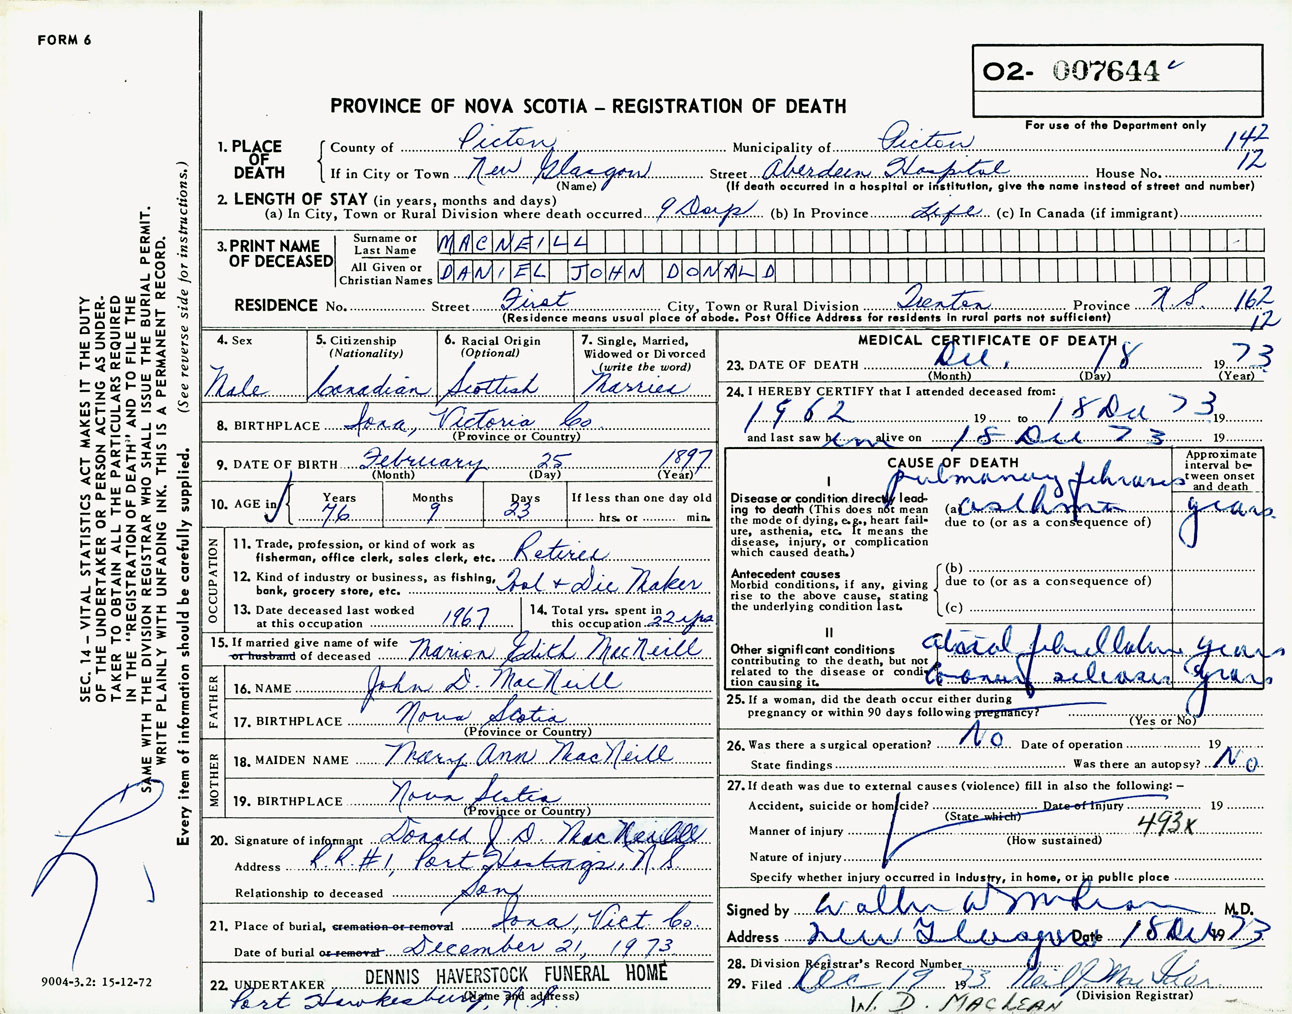 FORM 6
O2- 007644
For use of the Department only
PROVINCE OF NOVA SCOTIA — REGISTRATION OF DEATH
SEC. 14 — VITAL STATISTICS ACT MAKES IT THE DUTY
OF THE UNDERTAKER OR PERSON ACTING AS UNDER-
TAKER TO OBTAIN ALL THE PARTICULARS REQUIRED
IN THE "REGISTRATION OF DEATH" AND TO FILE THE
SAME WITH THE DIVISION REGISTRAR WHO SHALL ISSUE THE BURIAL PERMIT.
WRITE PLAINLY WITH UNFADING INK. THIS IS A PERMANENT RECORD.
Every item of information should be carefully supplied. (See reverse side for instructions.)
1. PLACE OF DEATH
County of Picton Municipality of Picton 142
If in City or Town New Glasgow Street Aberdeen Hospital House No. 12
(Name) (If death occurred in a hospital or institution, give the name instead of street and number)
2. LENGTH OF STAY (in years, months and days)
(a) In City, Town or Rural Division where death occurred 9 Days (b) In Province Life (c) In Canada (if immigrant)
3. PRINT NAME OF DECEASED
Surname or Last Name MACNEILL
All Given or Christian Names DANIEL JOHN DONALD
RESIDENCE No. Street First City, Town or Rural Division Trenton Province N.S. 162
(Residence means usual place of abode. Post Office Address for residents in rural parts not sufficient) 12
4. Sex Male
5. Citizenship (Nationality) Canadian
6. Racial Origin (Optional) Scottish
7. Single, Married, Widowed or Divorced (write the word) Married
8. BIRTHPLACE Iona, Victoria Co
(Province or Country)
9. DATE OF BIRTH February 25 1897
(Month) (Day) (Year)
10. AGE in Years 76 Months 9 Days 23 If less than one day old hrs. or min.
OCCUPATION
11. Trade, profession, or kind of work as fisherman, office clerk, sales clerk, etc. Retired
12. Kind of industry or business, as fishing, bank, grocery store, etc. Tool + Die Maker
13. Date deceased last worked at this occupation 1967
14. Total yrs. spent in this occupation 22 yrs
15. If married give name of wife or husband of deceased Marion Edith MacNeill
FATHER
16. NAME John D. MacNeill
17. BIRTHPLACE Nova Scotia
(Province or Country)
MOTHER
18. MAIDEN NAME Mary Ann MacNeill
19. BIRTHPLACE Nova Scotia
(Province or Country)
20. Signature of informant Donald J. D. MacNeill
Address R.R.#1, Port Hastings, N.S
Relationship to deceased Son
21. Place of burial, cremation or removal Iona, Vict. Co.
Date of burial or removal December 21, 1973
22. UNDERTAKER DENNIS HAVERSTOCK FUNERAL HOME
(Name and address)
Port Hawkesbury, N.S.
9004-3.2: 15-12-72
MEDICAL CERTIFICATE OF DEATH
23. DATE OF DEATH Dec. 18 1973
(Month) (Day) (Year)
24. I HEREBY CERTIFY that I attended deceased from:
1962 19 to 18 Dec 73 19
and last saw him alive on 18 Dec 73 19
CAUSE OF DEATH
Approximate interval between onset and death
I
Disease or condition directly leading to death (This does not mean the mode of dying, e.g., heart failure, asthenia, etc. It means the disease, injury, or complication which caused death.)
pulmonary fibrosis
(a) asthma years
due to (or as a consequence of)
Antecedent causes
Morbid conditions, if any, giving rise to the above cause, stating the underlying condition last.
(b)
due to (or as a consequence of)
(c)
II
Other significant conditions contributing to the death, but not related to the disease or condition causing it.
atrial fibrillation years
coronary sclerosis years
25. If a woman, did the death occur either during pregnancy or within 90 days following pregnancy?
(Yes or No)
26. Was there a surgical operation? No Date of operation 19
State findings Was there an autopsy? No
27. If death was due to external causes (violence) fill in also the following: —
Accident, suicide or homicide? Date of Injury 19
(State which)
Manner of injury 493X
(How sustained)
Nature of injury
Specify whether injury occurred in Industry, in home, or in public place
Signed by M.D.
Address New Glasgow Date 18 Dec 1973
28. Division Registrar's Record Number
29. Filed Dec 19 1973
(Division Registrar)
W. D. MACLEAN